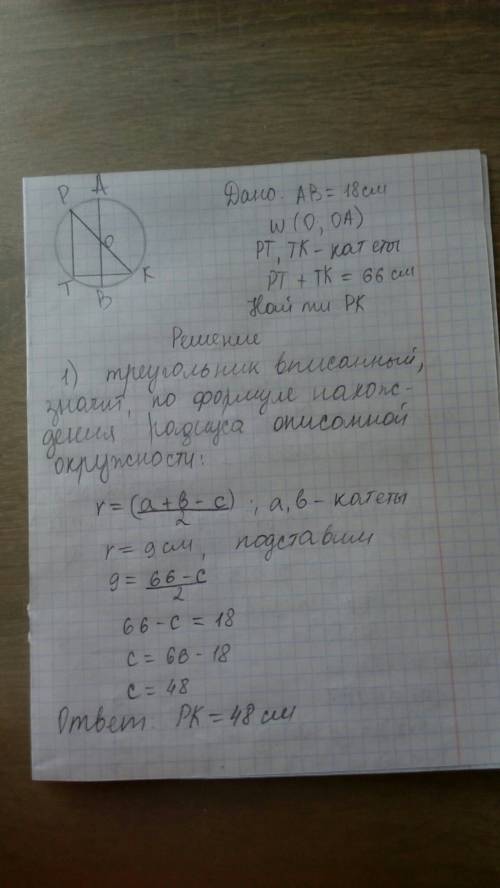 P A
O
T B K
Дано: AB = 18 см
W (O, OA)
PT, TK - катеты
PT + TK = 66 см
Найти PK
Решение
1) треугольник вписанный,
значит, по формуле нахож-
дения радиуса описанной
окружности:
r = (a + b - c)/2 ; a, b - катеты
r = 9 см, подставим
9 = 66 - c/2
66 - c = 18
c = 66 - 18
c = 48
Ответ: PK = 48 см